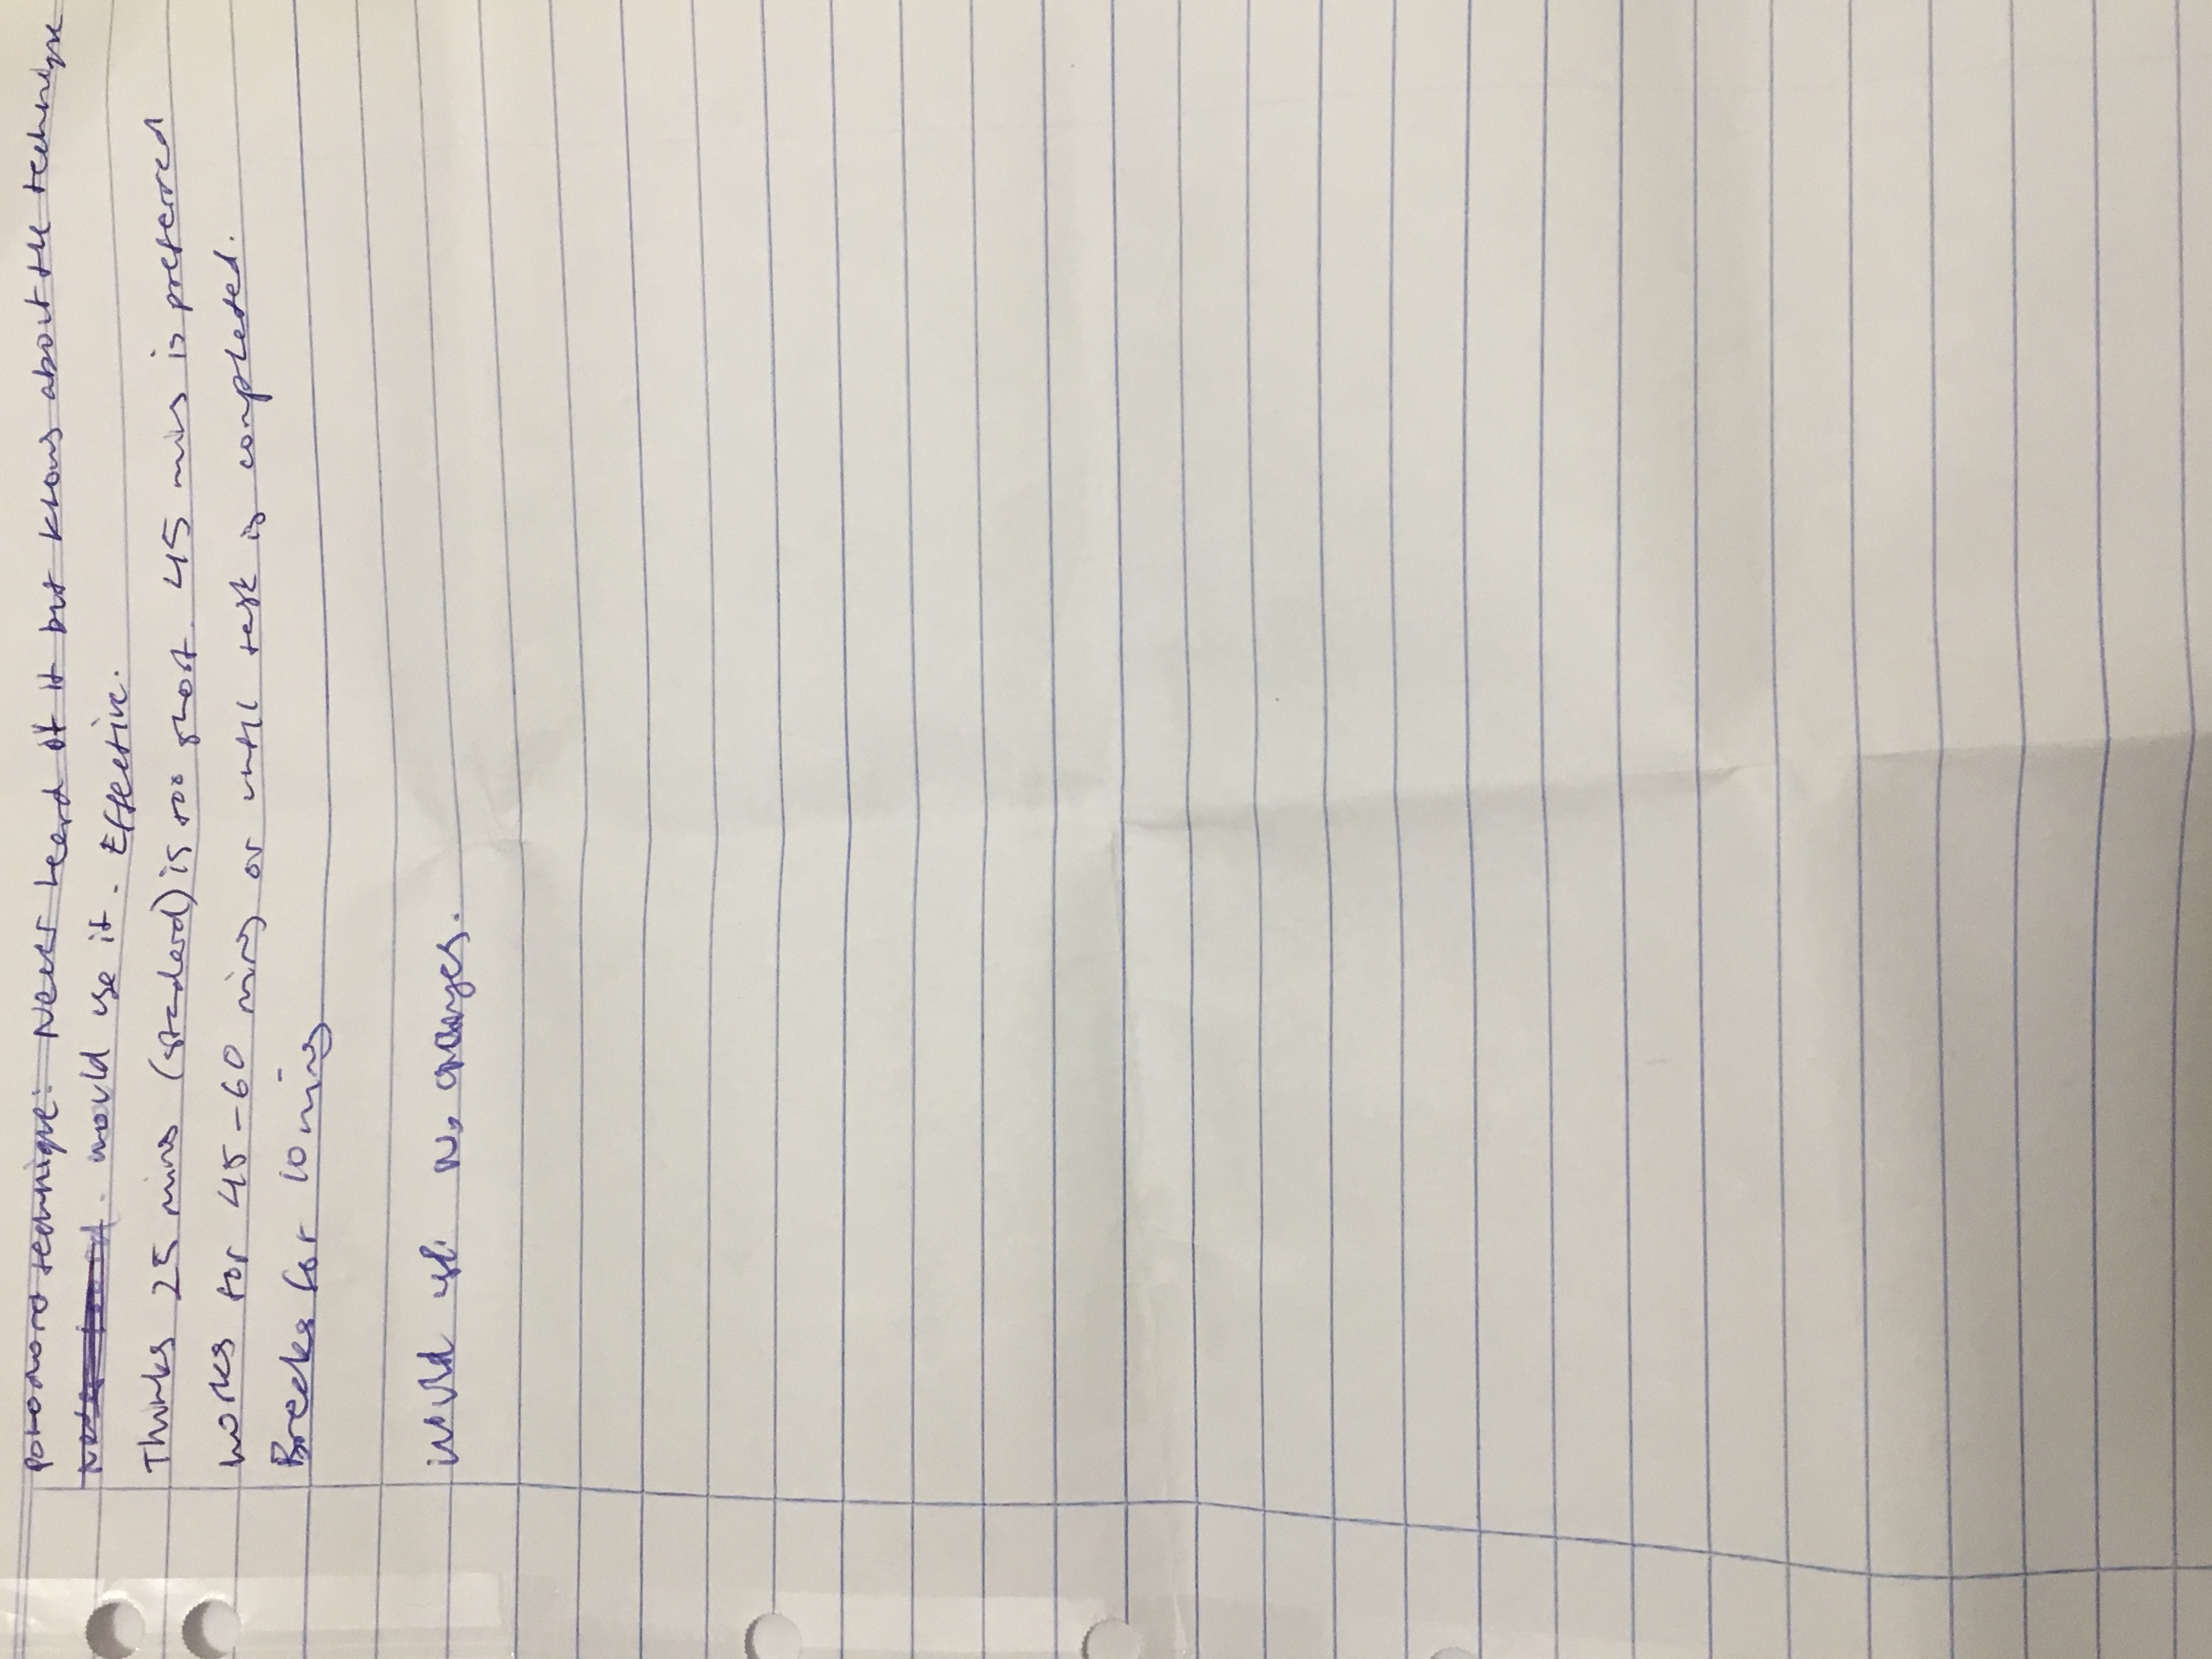 Pomodoro technique: Never heard of it but knows about the technique
would use it. Effective.
Thinks 25 mins (standard) is too short. 45 mins is preferred
works for 45-60 mins or until task is completed.
Breaks for 10 mins
Would use. No changes.